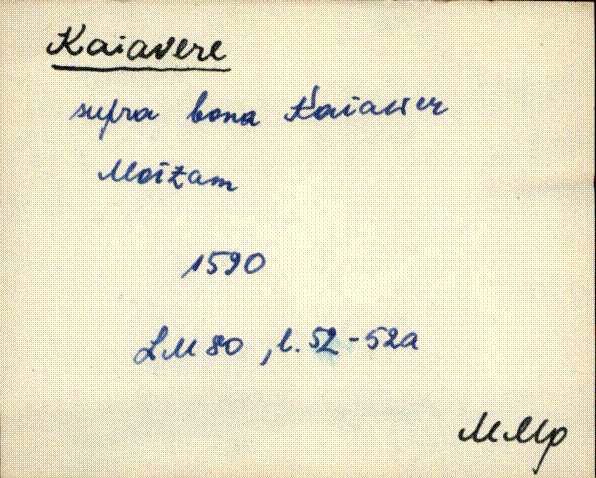 Kaiavere
supra bona Kaiawer
Moiżam
1590
LM 80, l. 52-52a
MMp